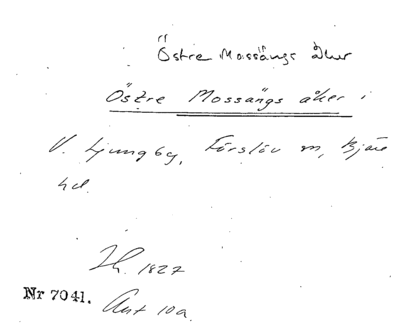 Östre Mossängs åker
Östre Mossängs åker i
V. Ljungby, Förslöv sn, Bjäre
hd.
Sk. 1827
Nr 7041.
Akt 10a